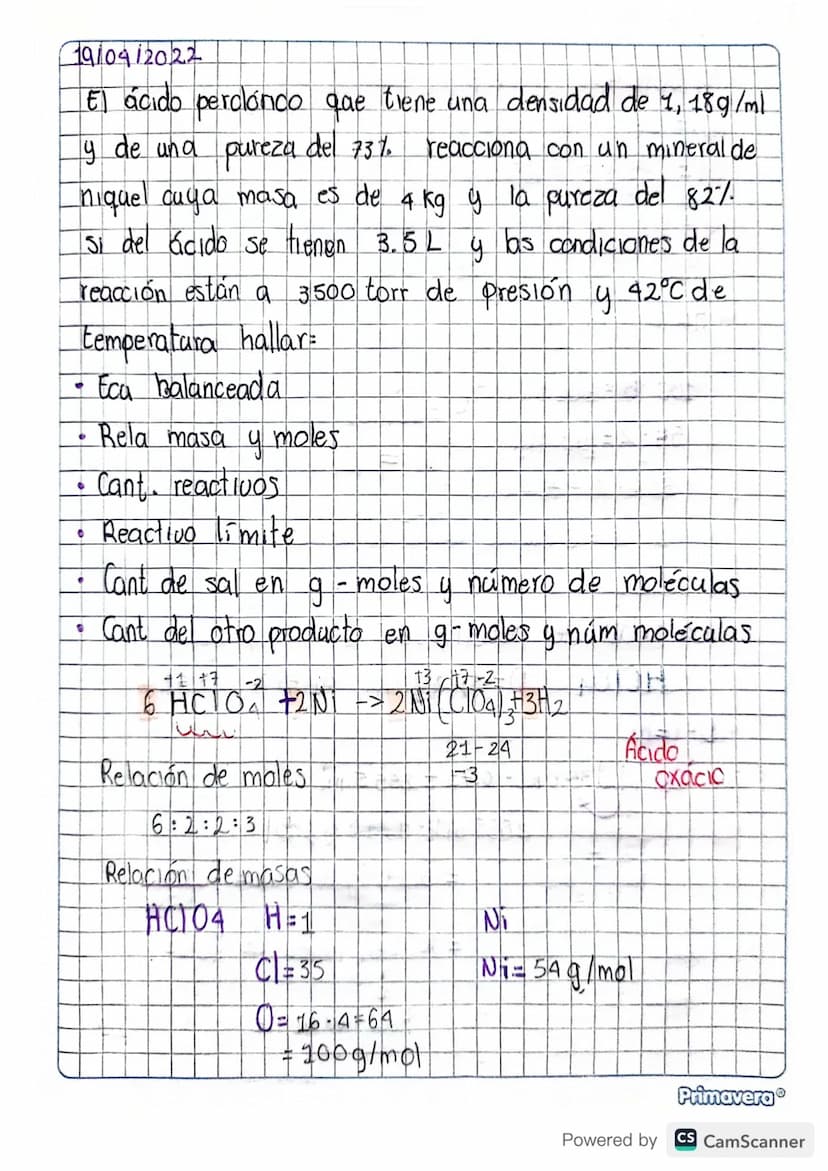 19/04/2022
El ácido perclórico que tiene una densidad de 1,18g/ml
y de una pureza del 73% reacciona con un mineral de
niquel cuya masa es de 4 kg y la pureza del 82%
si del ácido se tienen 3.5 L y las condiciones de la
reacción están a 3500 torr de presión y 42°C de
temperatura hallar:
• Ecu balanceada
• Rela masa y moles
• Cant. reactivos
• Reactivo límite
• Cant de sal en g - moles y número de moléculas
• Cant del otro producto en g- moles y núm moléculas
+1 +7 -2 +3 +7 -2
6 HClO4 +2Ni -> 2Ni(ClO4)3+3H2
21-24
-3
Ácido
oxácic
Relación de moles
6:2:2:3
Relación de masas
HClO4 H=1 Ni
Cl=35 Ni= 54g/mol
O= 16·4=64
= 100g/mol
Primavera®
Powered by CS CamScanner